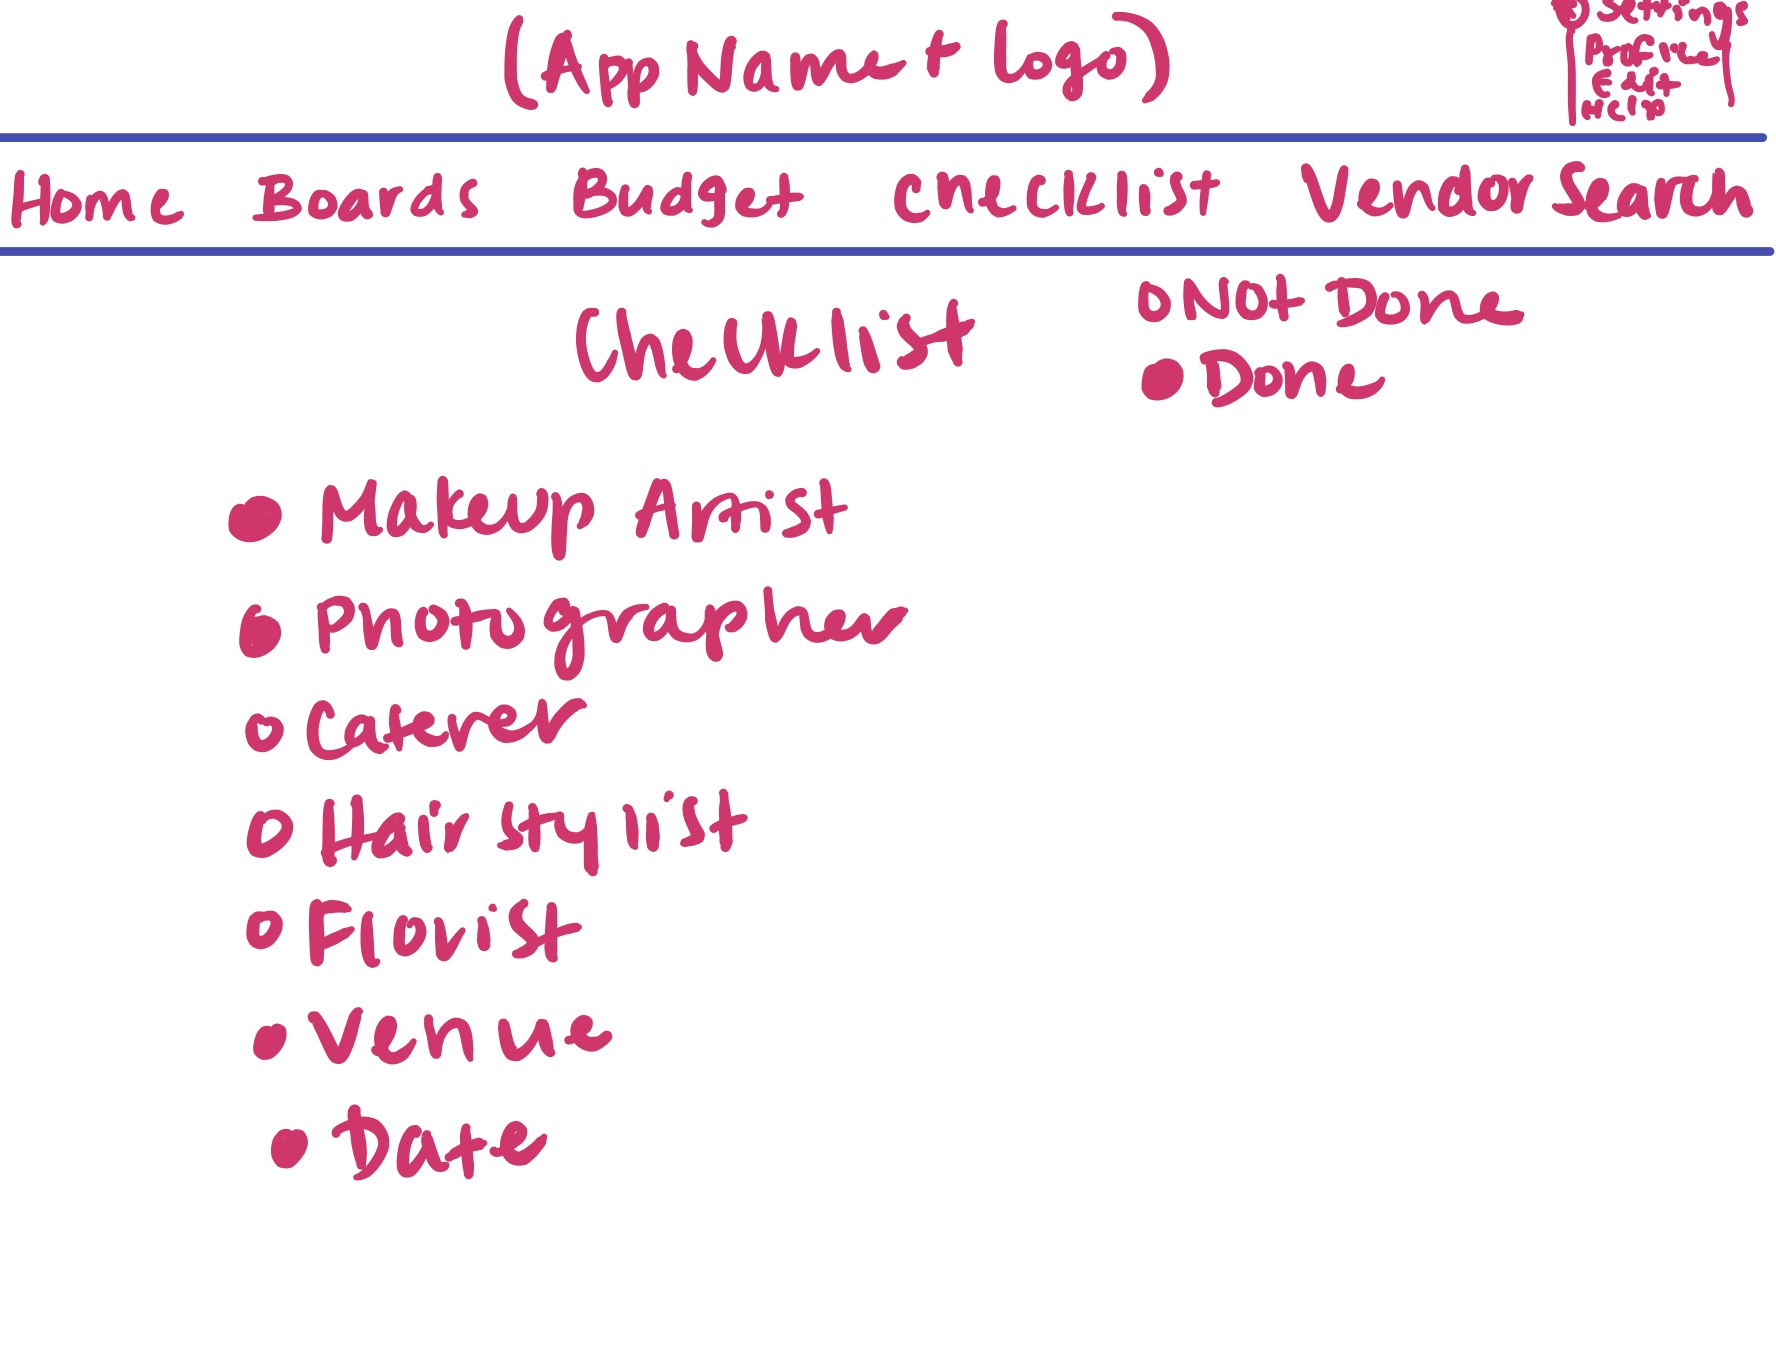 (App Name + Logo)
Settings
Profile
Exit
Help
Home Boards Budget Checklist Vendor Search
Checklist
Not Done
Done
Makeup Artist
Photographer
Caterer
Hair stylist
Florist
Venue
Date